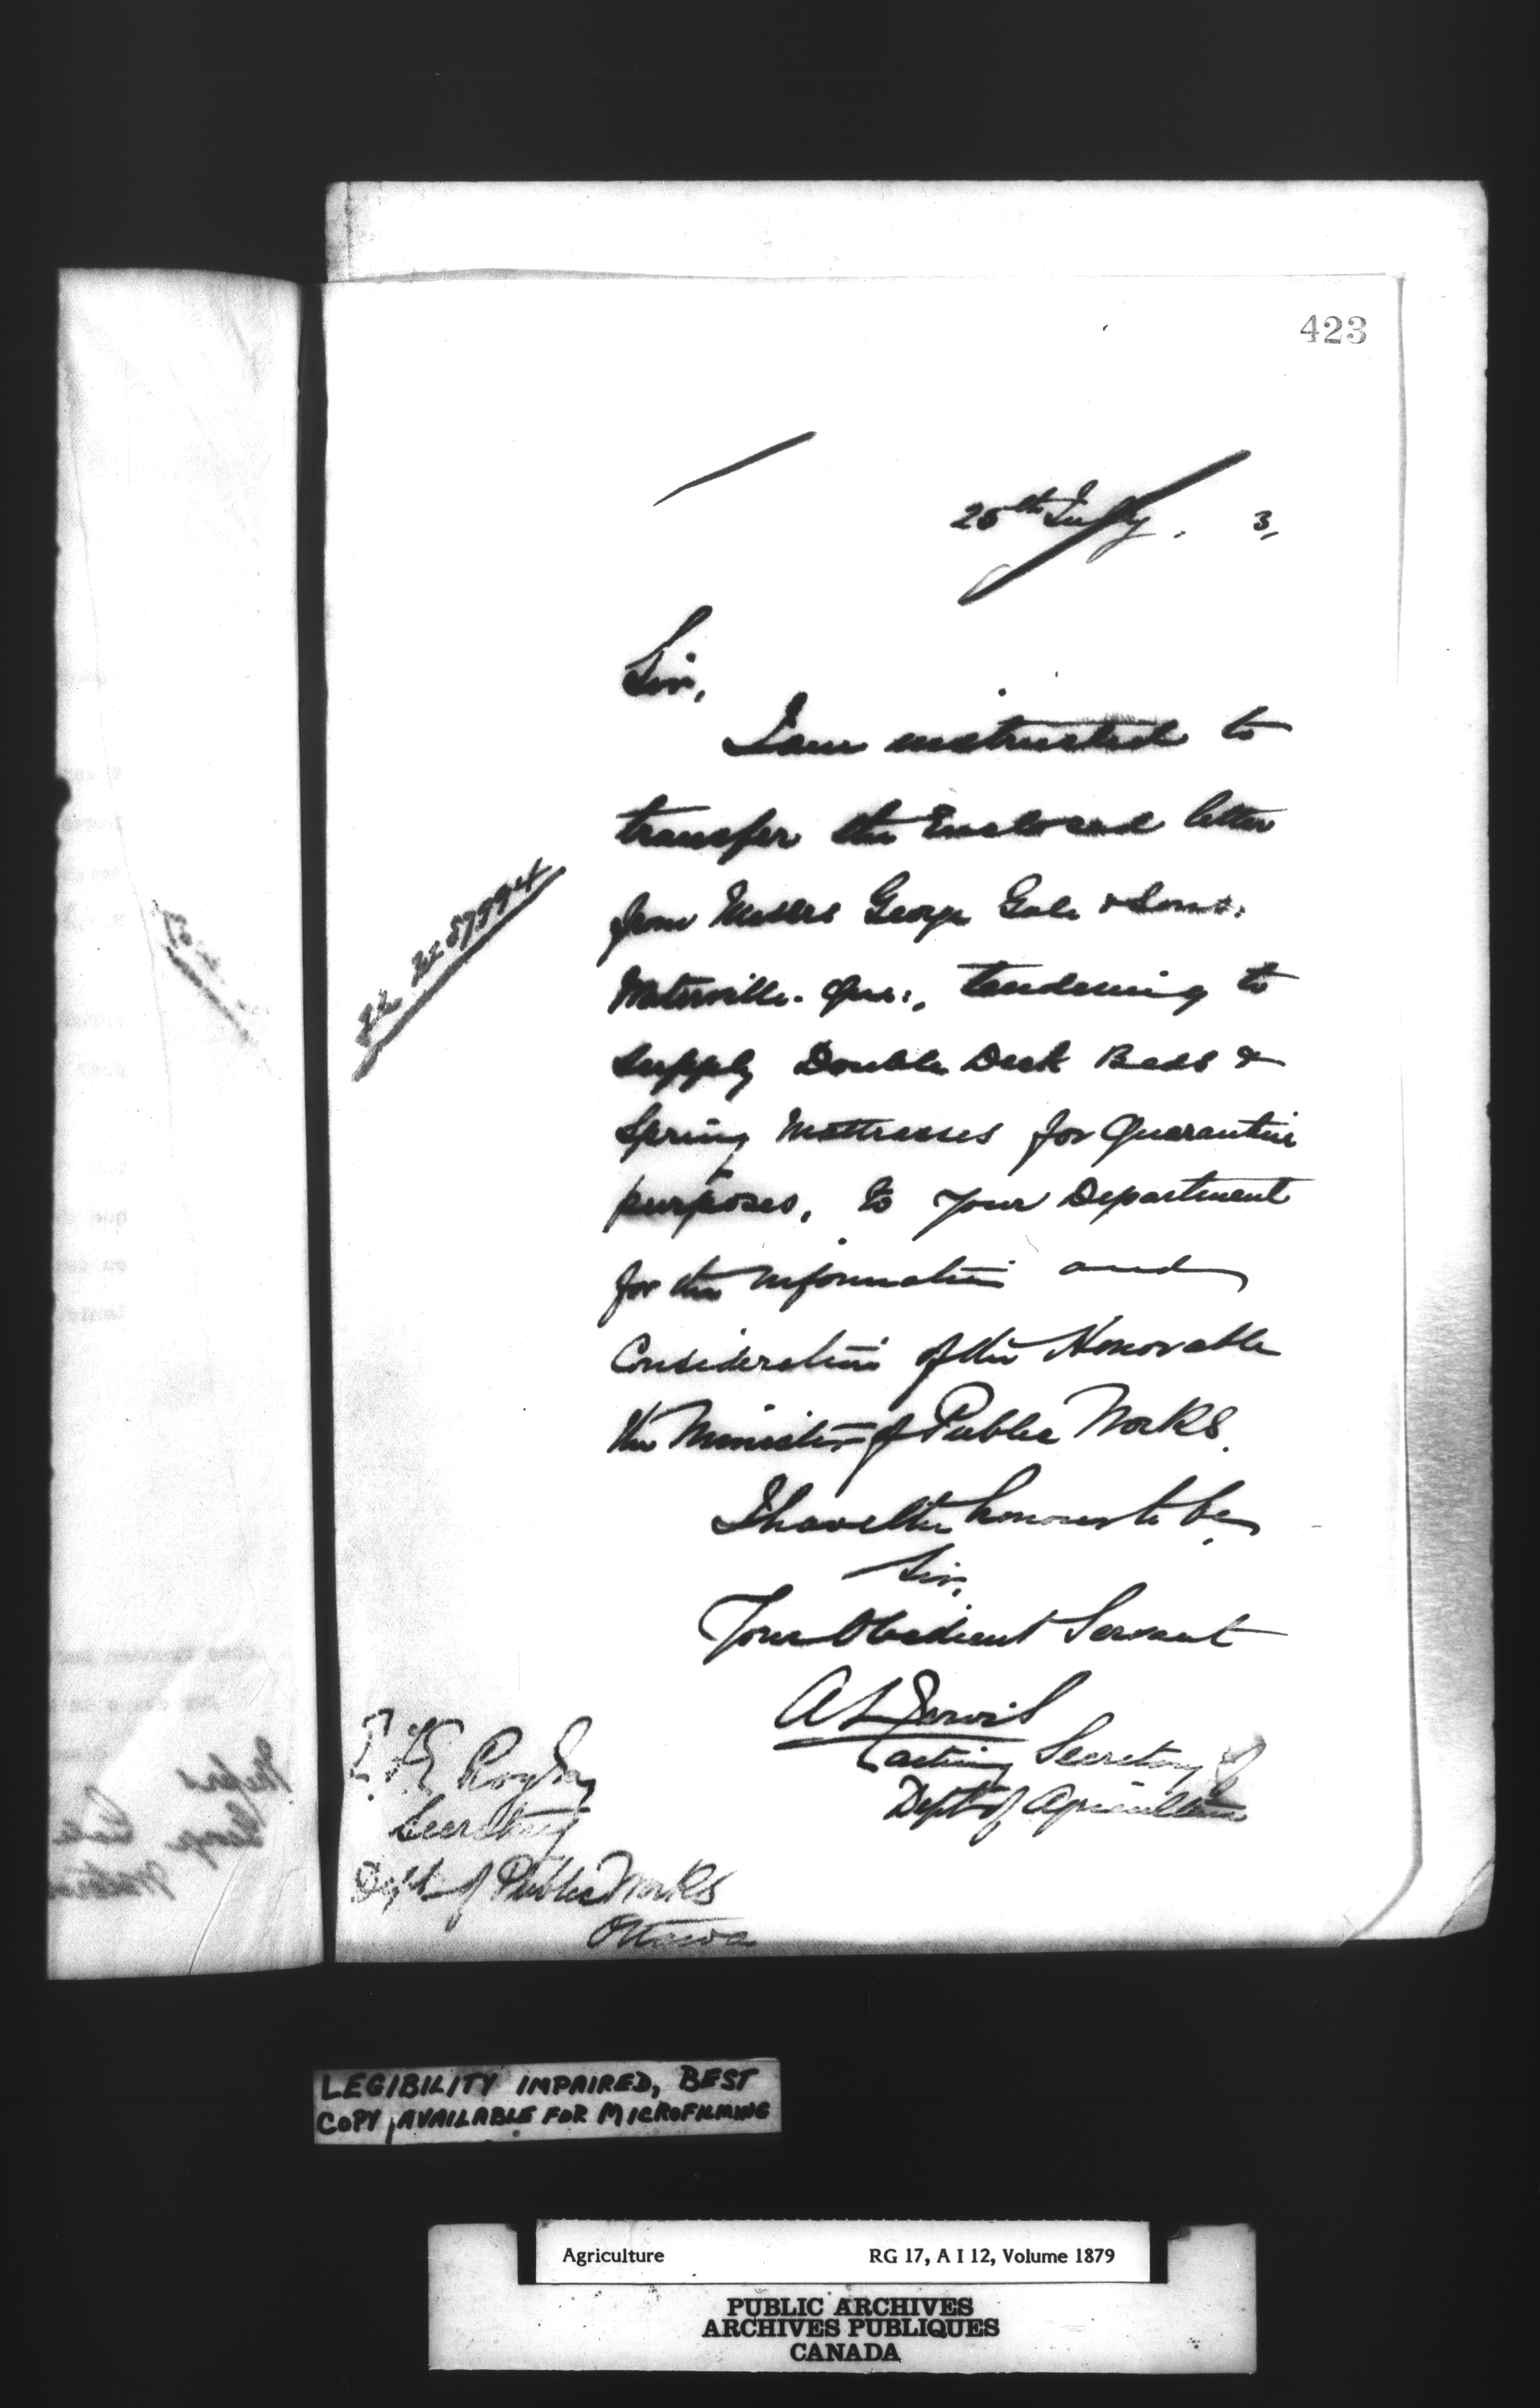 423
25th July. 3,
Sir,
I am instructed to
transfer the Enclosed letter
from Messrs George Gale & Sons:
Waterville. Que:, tendering to
supply Double Deck Beds &
Spring Mattrasses for Quarantine
purposes, to your Department
for the information and
Consideration of the Honorable
the Minister of Public Works.
I have the honour to be,
Sir,
Your Obedient Servant
A L Jarvis
acting Secretary
Dept of Agriculture
Roy Esq
Secretary
Dept of Public Works
Ottawa
LEGIBILITY IMPAIRED, BEST
COPY AVAILABLE FOR MICROFILMING
Agriculture RG 17, A I 12, Volume 1879
PUBLIC ARCHIVES
ARCHIVES PUBLIQUES
CANADA